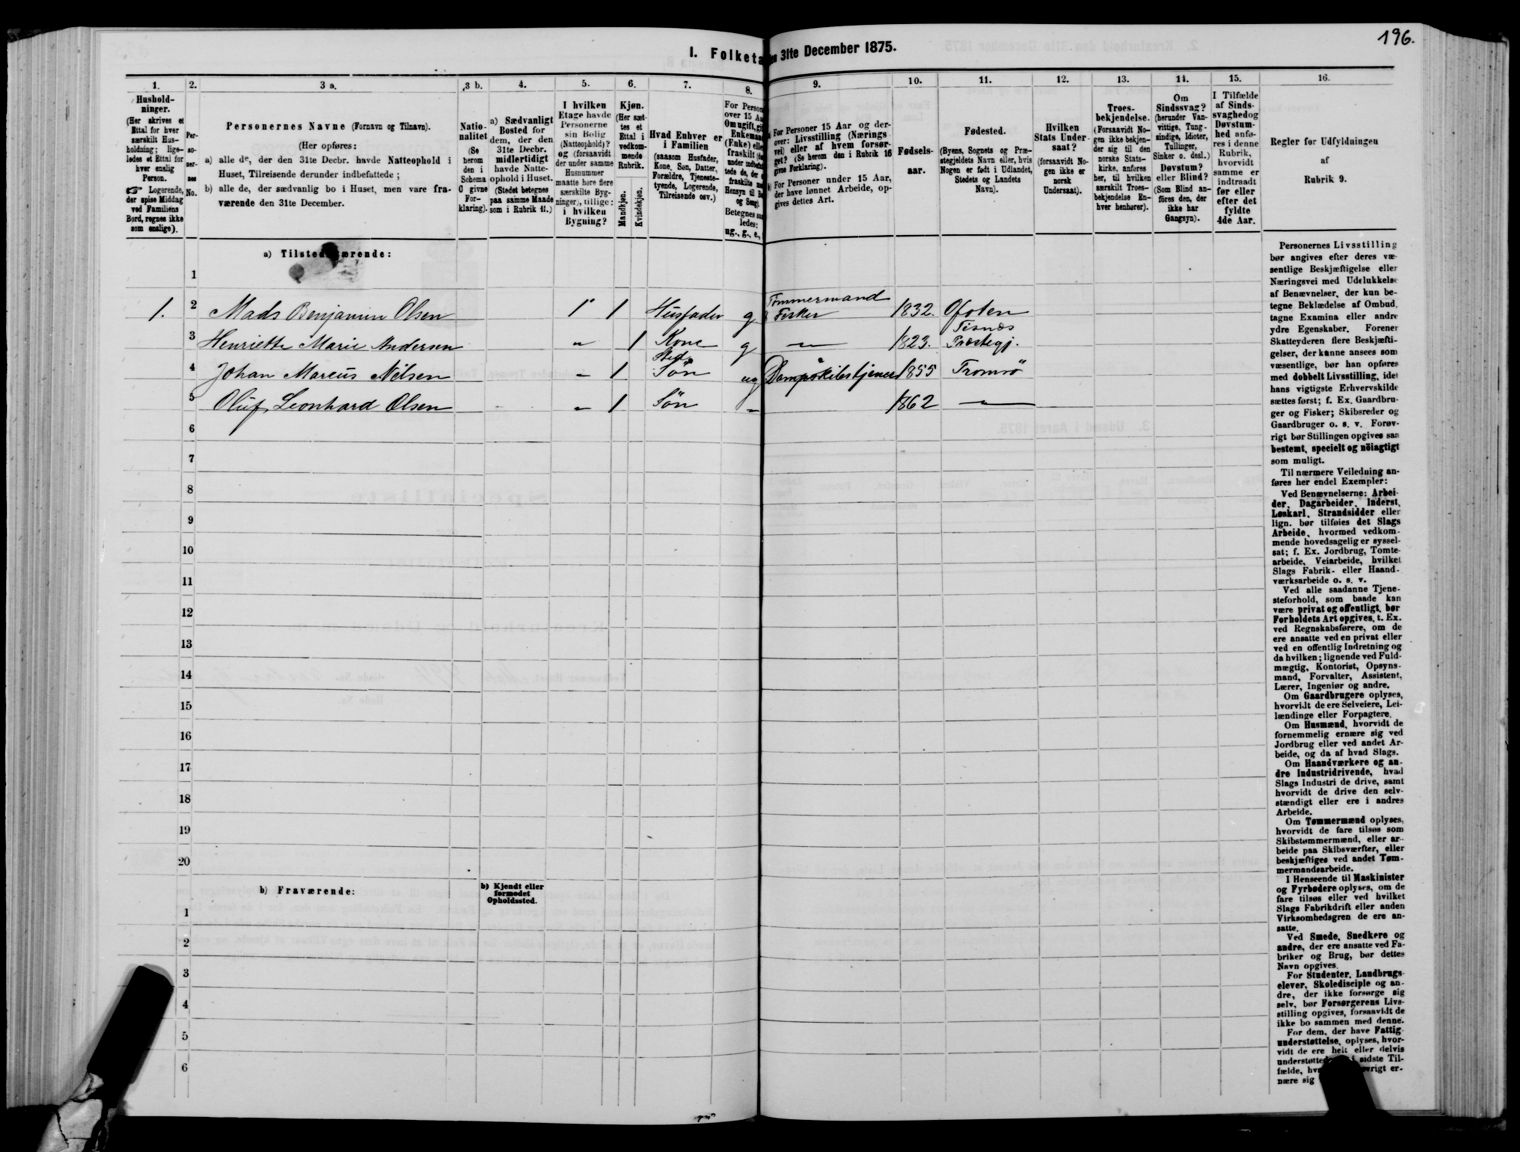 196.
I. Folketæ
en 31te December 1875.
1.
2.
3 a.
3 b.
4.
5.
6.
7.
8.
9.
10.
11.
12.
13.
14.
15.
16.
Hushold-
ninger.
(Her skrives et
Ettal for hver
særskilt Hus-
holdning; lige-
ledes et Ettal for
hver enslig
Person.
☞ Logerende,
der spise Middag
ved Familiens
Bord, regnes ikke
som enslige).
Per-
so-
ner-
nes
No.
Personernes Navne (Fornavn og Tilnavn).
(Her opføres:
a) alle de, der den 31te Decbr. havde Natteophold i
Huset, Tilreisende derunder indbefattede;
b) alle de, der sædvanlig bo i Huset, men vare fra-
værende den 31te December.
Natio-
nalitet
(Se
herom
den i
Schema
C givne
For-
klaring).
a) Sædvanligt
Bosted for
dem, der den
31te Decbr.
midlertidigt
havde Natte-
ophold i Huset.
(Stedet betegnes
paa samme Maade
som i Rubrik 11.)
I hvilken
Etage havde
Personerne
sin Bolig
(Natteophold)?
og (forsaavidt
der under samme
Husnummer
maatte høre flere
særskilte Byg-
ninger), tillige:
i hvilken
Bygning?
Kjøn.
(Her sæt-
tes et
Ettal i
vedkom-
mende
Rubrik.
Mandkjøn.
Kvindekjøn.
Hvad Enhver er
i Familien
(saasom Husfader,
Kone, Søn, Datter,
Forældre, Tjeneste-
tyende, Logerende,
Tilreisende osv.)
For Person
over 15 Aa
Om ugift, gi
Enkeman
(Enke) elle
fraskilt
Betegnes saa
ledes:
ug., g., e.,
For Personer 15 Aar og der-
over: Livsstilling (Nærings
vei) eller af hvem forsør-
get? (Se herom den i Rubrik 16
givne Forklaring).
For Personer under 15 Aar,
der have lønnet Arbeide, op-
gives dettes Art.
Fødsels-
aar.
Fødested.
(Byens, Sognets og Præ-
stegjeldets Navn eller, hvis
Nogen er født i Udlandet,
Stedets og Landets
Navn).
Hvilken
Stats Under-
saat?
(forsaavidt No-
gen ikke er
norsk
Undersaat).
Troes-
bekjendelse.
(Forsaavidt No-
gen ikke bekjen-
der sig til den
norske Stats-
kirke, anføres
her, til hvilken
særskilt Troes-
bekjendelse En-
hver henhører).
Om
Sindssvag?
(herunder Van-
vittige, Tung-
sindige, Idioter,
Tullinger,
Sinker o. desl.)
Døvstum?
eller Blind?
(Som Blind an-
føres den, der
ikke har
Gangsyn).
I Tilfælde
af Sinds-
svaghed og
Døvstum-
hed anfø-
res i denne
Rubrik,
hvorvidt
samme er
indtraadt
før eller
efter det
fyldte
4de Aar.
Regler for Udfyldningen
af
Rubrik 9.
a) Tilstedeværende:
1
1. 2 Mads Benjamin Olsen 1" 1 Husfader g Tømmermand & Fisker 1832. Ofoten
3 Henriette Marie Andersen " 1 Kone g " 1823. Tisnæs Præstegj.
4 Johan Marcus Nilsen " 1 Sted Søn ug Dampskibstjener 1855 Tromsø
5 Oluf Leonhard Olsen " 1 Søn " 1862 "
6
7
8
9
10
11
12
13
14
15
16
17
18
19
20
b) Fraværende:
b) Kjendt eller
formodet
Opholdssted.
1
2
3
4
5
6
Personernes Livsstilling
bør angives efter deres væ-
sentlige Beskjæftigelse eller
Næringsvei med Udelukkelse
af Benævnelser, der kun be-
tegne Beklædelse af Ombud,
tagne Examina eller andre
ydre Egenskaber. Forener
Skatteyderen flere Beskjæfti-
gelser, der kunne ansees som
væsentlige, bør han opføres
med dobbelt Livsstilling, idet
hans vigtigste Erhvervskilde
sættes først; f. Ex. Gaardbru-
ger og Fisker; Skibsreder og
Gaardbruger o. s. v. Forøv-
rigt bør Stillingen opgives saa
bestemt, specielt og nöiagtigt
som muligt.
Til nærmere Veiledning an-
føres her endel Exempler:
Ved Benævnelserne: Arbei-
der, Dagarbeider, Inderst,
Løskarl, Strandsidder eller
lign. bør tilføies det Slags
Arbeide, hvormed vedkom-
mende hovedsagelig er syssel-
sat; f. Ex. Jordbrug, Tomte-
arbeide, Veiarbeide, hvilket
Slags Fabrik- eller Haand-
værksarbeide o. s. v.
Ved alle saadanne Tjene-
steforhold, som baade kan
være privat og offentligt, bør
Forholdets Art opgives, t. Ex.
ved Regnskabsførere, om de
ere ansatte ved en privat eller
ved en offentlig Indretning og
da hvilken; lignende ved Fuld-
mægtig, Kontorist, Opsyns-
mand, Forvalter, Assistent,
Lærer, Ingeniør og andre.
Om Gaardbrugere oplyses,
hvorvidt de ere Selveiere, Lei-
lændinge eller Forpagtere.
Om Husmænd, hvorvidt de
fornemmelig ernære sig ved
Jordbrug eller ved andet Ar-
beide, og da af hvad Slags.
Om Haandværkere og an-
dre Industridrivende, hvad
Slags Industri de drive, samt
hvorvidt de drive den selv-
stændigt eller ere i andres
Arbeide.
Om Tømmermænd oplyses,
hvorvidt de fare tilsøs som
Skibstømmermænd, eller ar-
beide paa Skibsværfter, eller
beskjæftiges ved andet Tøm-
mermandsarbeide.
I Henseende til Maskinister
og Fyrbødere oplyses, om de
fare tilsøs eller ved hvilket
Slags Fabrikdrift eller anden
Virksomhedsgren de ere an-
satte.
Ved Smede, Snedkere og
andre, der ere ansatte ved Fa-
briker og Brug, bør dettes
Navn opgives.
For Studenter, Landbrugs-
elever, Skoledisciple og an-
dre, der ikke forsørge sig
selv, bør Forsørgerens Livs-
stilling opgives, forsaavidt de
ikke bo sammen med denne.
For dem, der have Fattig-
understøttelse, oplyses, hvor-
vidt de ere helt eller delvis
understøttede i sidste Til-
fælde, hv øvrigt er-
nære sig